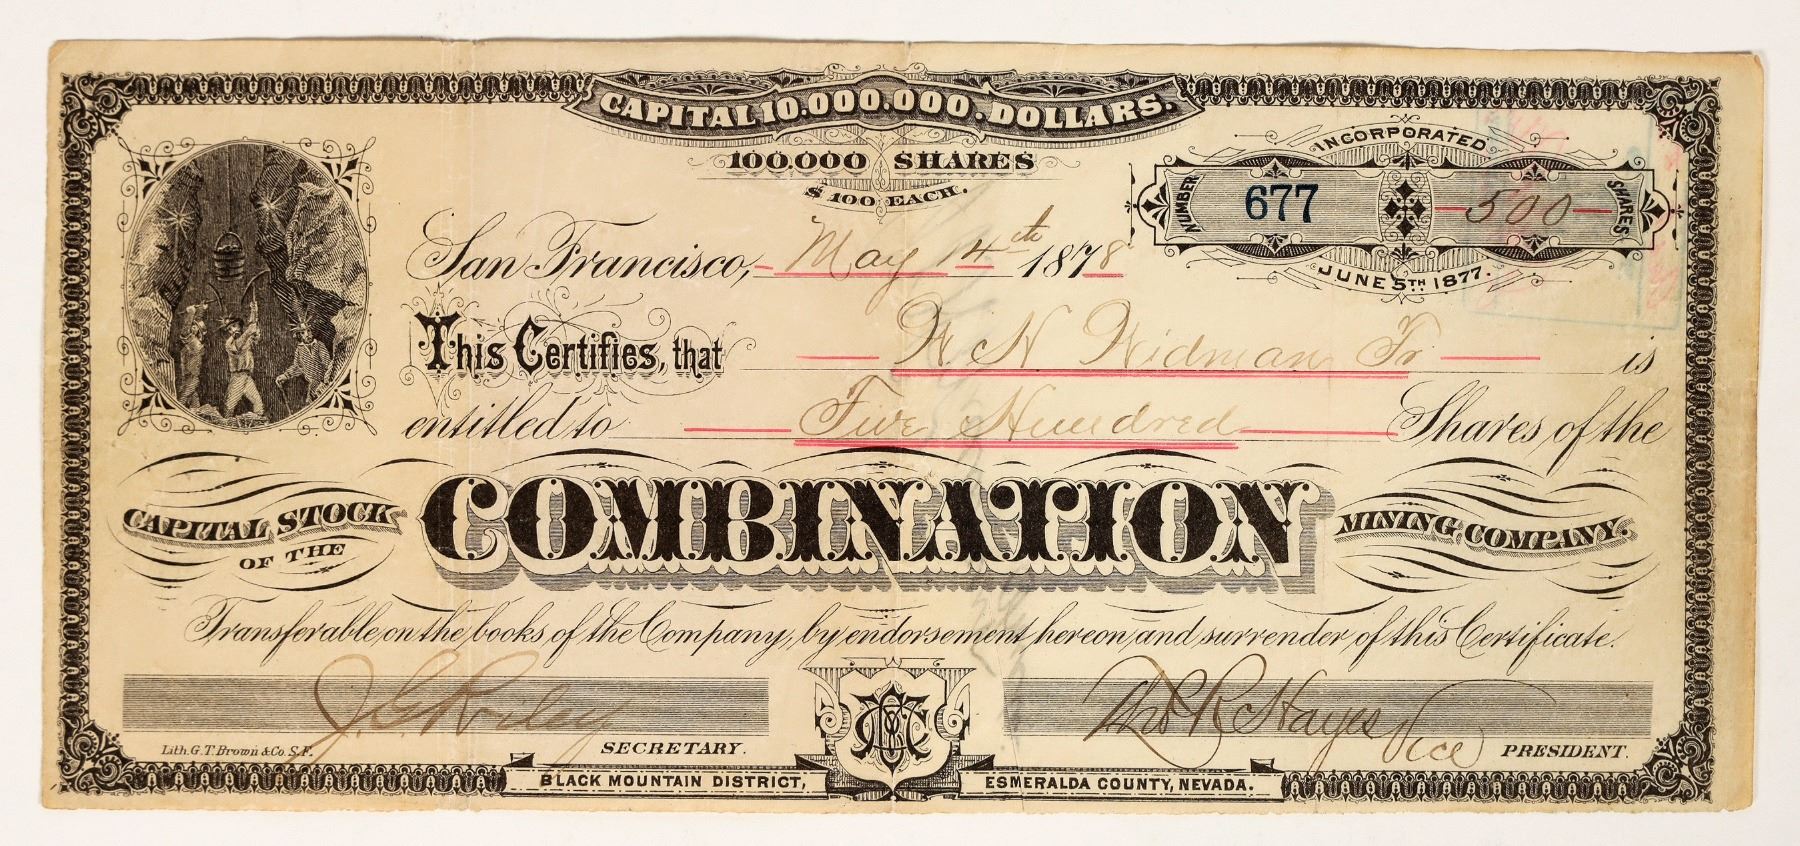 CAPITAL 10.000.000. DOLLARS.
100.000 SHARES
$100 EACH.
INCORPORATED
NUMBER 677 500 SHARES
JUNE 5TH 1877.
San Francisco, May 14th 1878
This Certifies, that H N Widman Jr is
entitled to Five Hundred Shares of the
CAPITAL STOCK OF THE COMBINATION MINING COMPANY.
Transferable on the books of the Company, by endorsement hereon, and surrender of this Certificate.
J. G. Riley SECRETARY.
Thos R Hayes Vice PRESIDENT.
Lith. G. T. Brown & Co. S.F.
BLACK MOUNTAIN DISTRICT, ESMERALDA COUNTY, NEVADA.